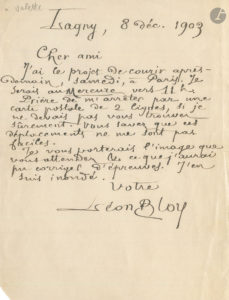 Valette
Lagny, 8 déc. 1903
Cher ami
J'ai le projet de courir après-
demain, samedi, à Paris. Je
serais au Mercure vers 11 h.
Prière de m'arrêter par une
carte postale de 2 lignes, si je
ne devais pas vous trouver
sûrement. Vous savez que ces
déplacements ne me sont pas
faciles.
Je vous porterais l'image que
vous attendez & ce que j'aurai
pu corriger d'épreuves. J'en
suis inondé.
Votre
Léon Bloy